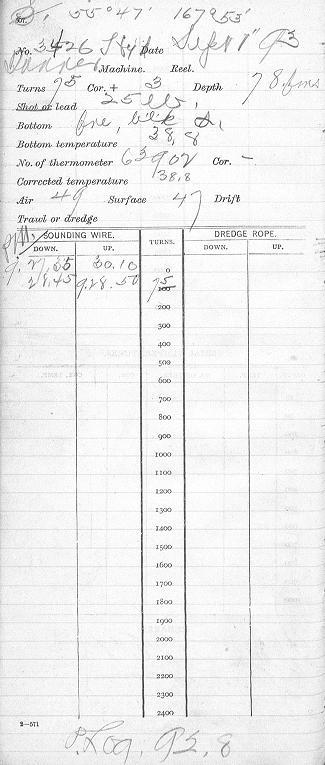 55° 47' 167° 53'
No. 3426 Hyd Date Sept 1" 93
Tanner Machine. Reel.
Turns 75 Cor. + 3 Depth 78 fms
Shot or lead 25 lb,
Bottom fne, blk S,
Bottom temperature 38,8
No. of thermometer 63902 Cor. –
Corrected temperature 38,8
Air 49 Surface 47 Drift
Trawl or dredge
P.M. SOUNDING WIRE. TURNS. DREDGE ROPE.
DOWN. UP. DOWN. UP.
9. 27,35 30.10 0
28.45 9.28.50 75 100
200
300
400
500
600
700
800
900
1000
1100
1200
1300
1400
1500
1600
1700
1800
1900
2000
2100
2200
2300
2400
2—571
P. Log, 93,8